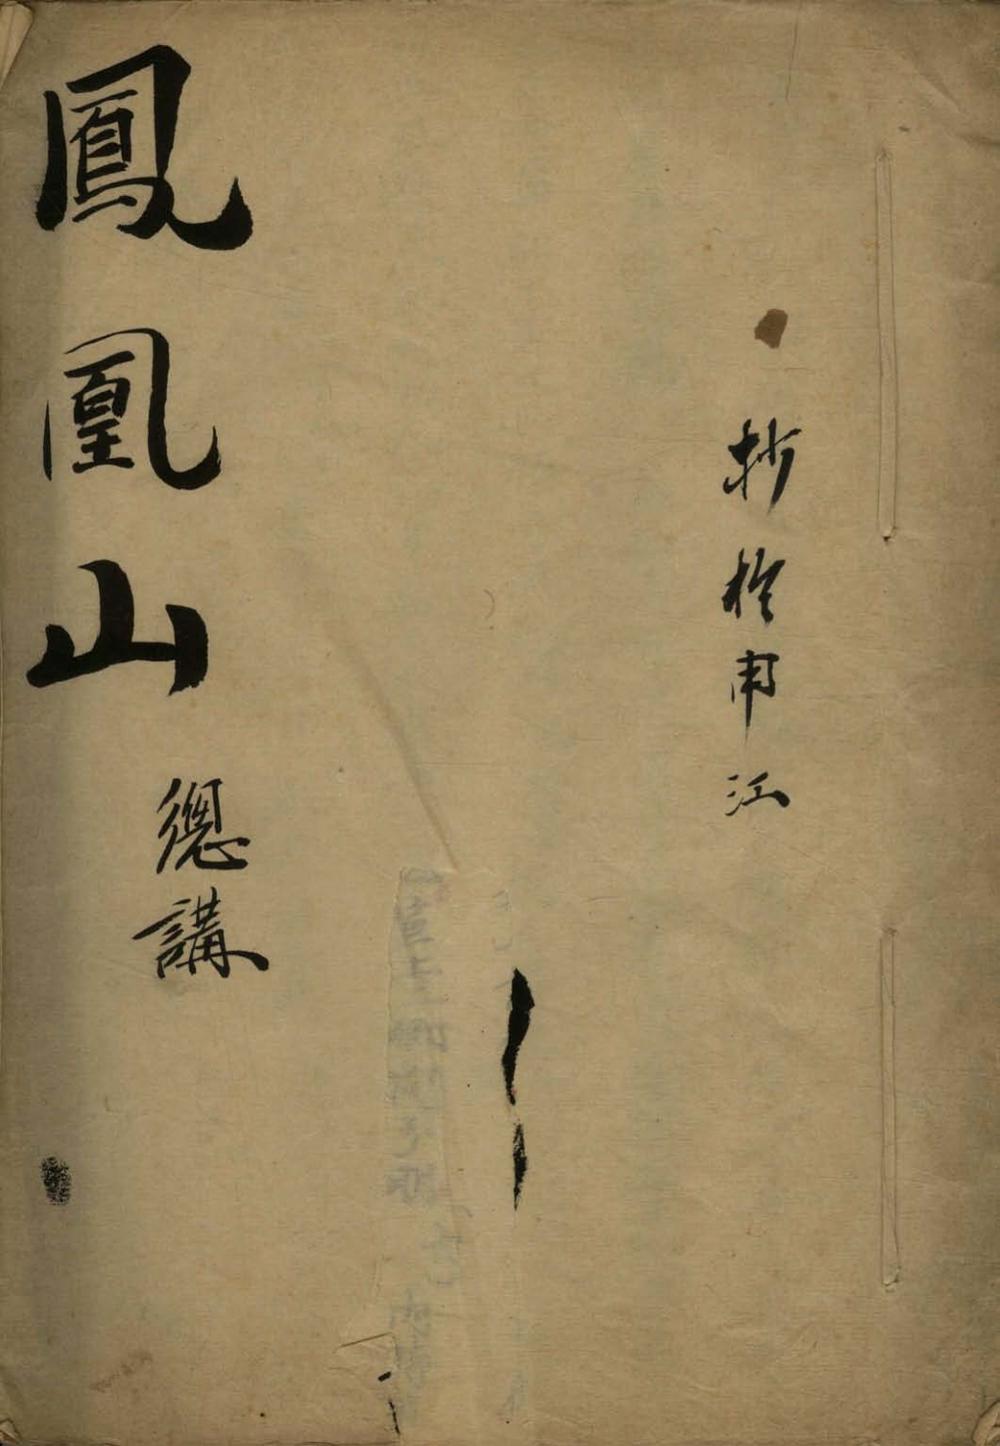 抄於甬江
鳳凰山
總講